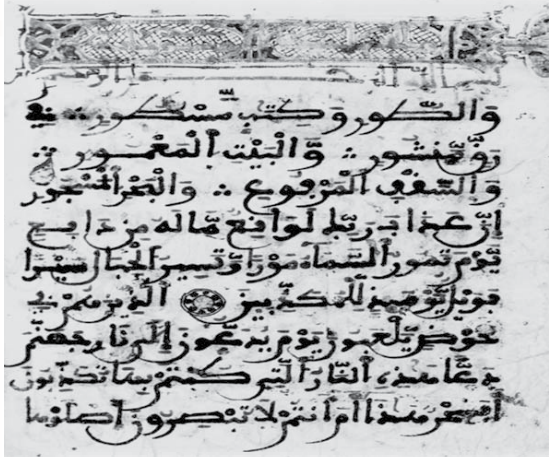 وَالطُّورِ وَكِتَٰبٍ مَّسْطُورٍ فِي
رَقٍّ مَّنشُورٍ وَالْبَيْتِ الْمَعْمُورِ
وَالسَّقْفِ الْمَرْفُوعِ وَالْبَحْرِ الْمَسْجُورِ
إِنَّ عَذَابَ رَبِّكَ لَوَٰقِعٌ مَّا لَهُ مِن دَافِعٍ
يَوْمَ تَمُورُ السَّمَاءُ مَوْرًا وَتَسِيرُ الْجِبَالُ سَيْرًا
فَوَيْلٌ يَوْمَئِذٍ لِّلْمُكَذِّبِينَ الَّذِينَ هُمْ فِي
خَوْضٍ يَلْعَبُونَ يَوْمَ يُدَعُّونَ إِلَىٰ نَارِ جَهَنَّمَ
دَعًّا هَٰذِهِ النَّارُ الَّتِي كُنتُم بِهَا تُكَذِّبُونَ
أَفَسِحْرٌ هَٰذَا أَمْ أَنتُمْ لَا تُبْصِرُونَ اصْلَوْهَا